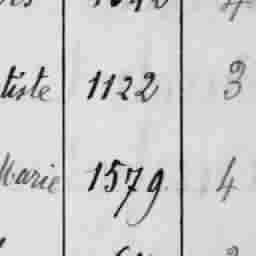 tiste 1122 3
Marie 1579 4